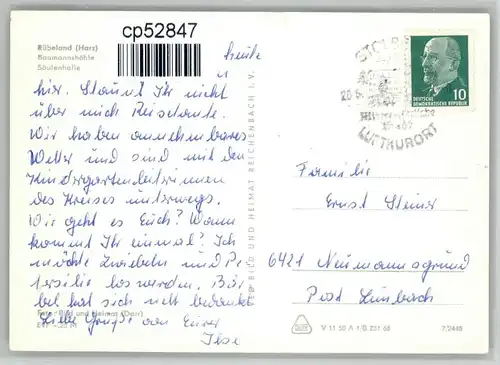 cp52847
Rübeland (Harz)
Baumannshöhle
Säulenhalle
heute
hier. Staunt Ihr nicht
über mich Reisetante.
Wir haben annehmbares
Wetter und sind mit den
Kindergartenleiterinnen
des Kreises unterwegs.
Wie geht es Euch? Wann
kommt Ihr einmal? Ich
möchte Zwiebeln und Pe-
tersilie los werden. Bär-
bel hat sich nett bedankt
Liebe Grüße von Eurer
Ilse
Foto: Bild und Heimat (Darr)
VEB BILD UND HEIMAT REICHENBACH I. V.
STOLB
20.
LUFTKURORT
DEUTSCHE
DEMOKRATISCHE REPUBLIK
10
Familie
Ernst Steiner
6421 Neumannsgrund
Post Limbach
V 11 50 A 1/B 231/68
7/2448